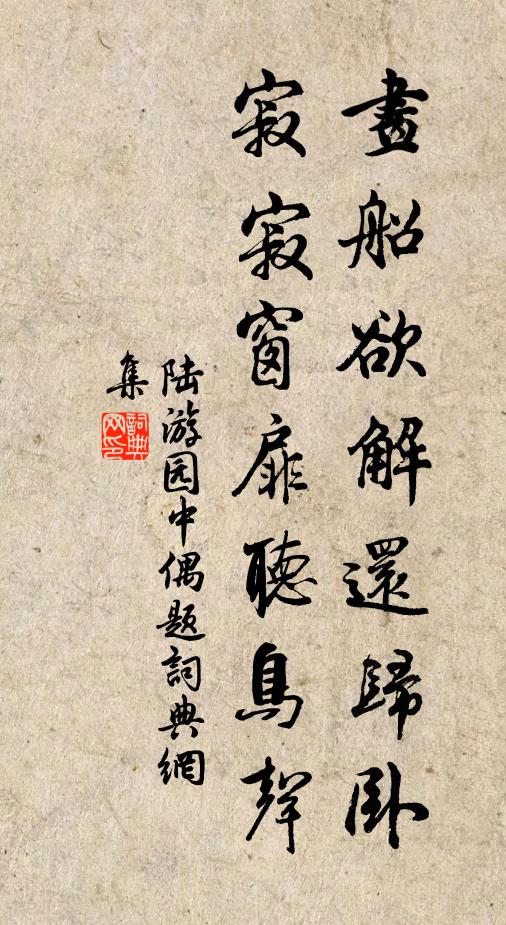 畫船欲解還歸卧
寂寂窗扉聽鳥聲
陆游园中偶题詞典網
集
詞典网印